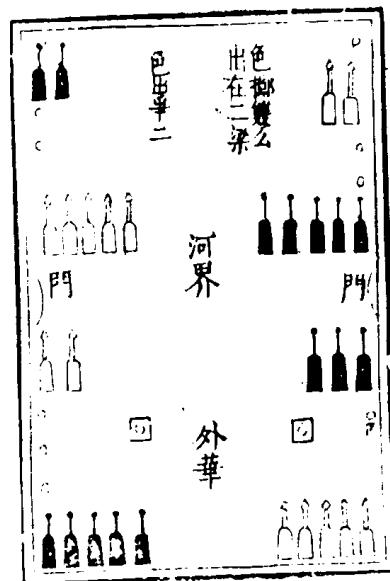 色擲幾么
出在二梁
色出二
河界
門
門
外華